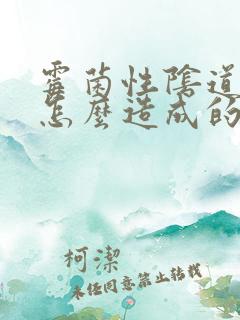 霉菌性陰道
怎麼造成的
柯潔
未经同意禁止转载